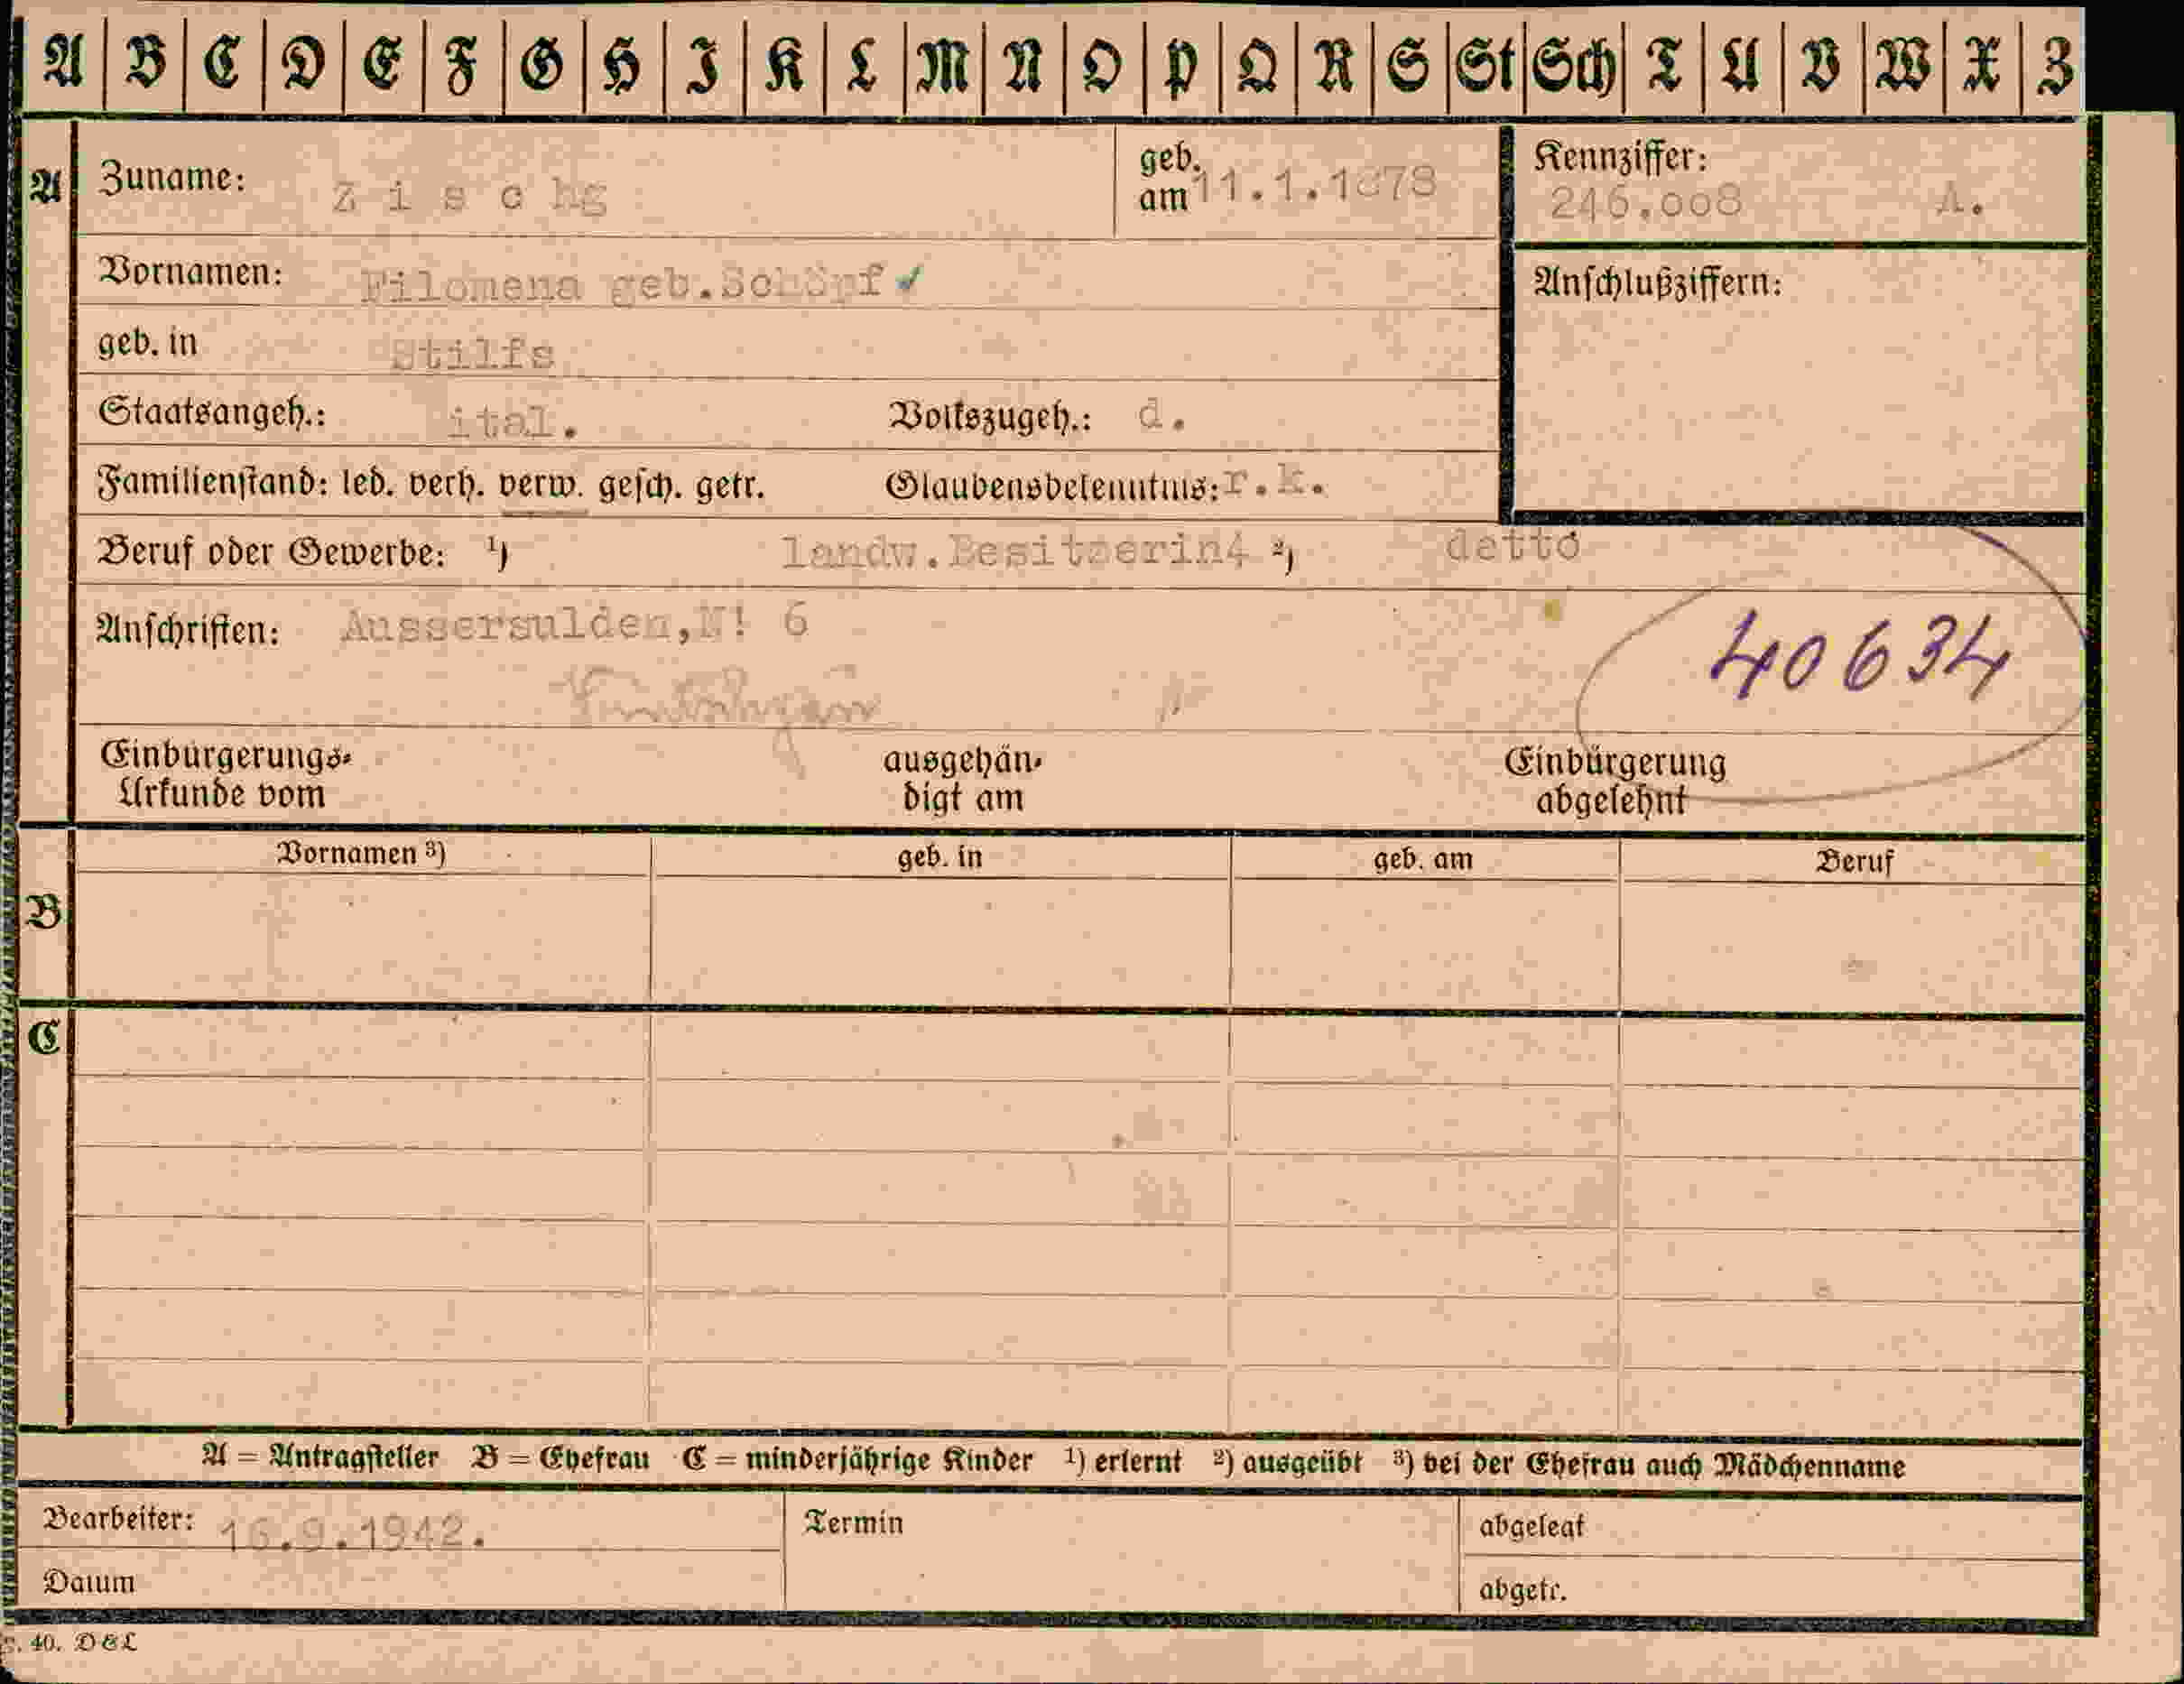 A B C D E F G H I K L M N O P Q R S St Sch T U V W X Z
A Zuname: Zischg geb. am 11.1.1878 Kennziffer: 246.008 A.
Vornamen: Filomena geb.Schöpf ✓ Anschlußziffern:
geb. in Stilfs
Staatsangeh.: ital. Volkszugeh.: d.
Familienstand: led. verh. verw. gesch. getr. Glaubensbekenntnis: r.k.
Beruf oder Gewerbe: ¹) landw.Besitzerin4 ²) detto
Anschriften: Aussersulden,N! 6
40634
Einbürgerungs-
Urkunde vom
ausgehän-
digt am
Einbürgerung
abgelehnt
Vornamen ³) geb. in geb. am Beruf
B
C
A = Antragsteller B = Ehefrau C = minderjährige Kinder ¹) erlernt ²) ausgeübt ³) bei der Ehefrau auch Mädchenname
Bearbeiter: 16.9.1942. Termin abgelegt
Datum abgetr.
40. D&L